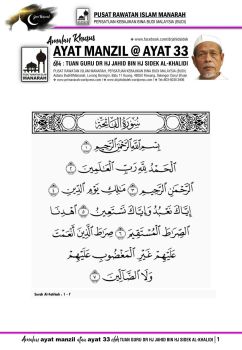 PUSAT RAWATAN ISLAM MANARAH
PERSATUAN KEBAJIKAN BINA BUDI MALAYSIA (BUDI)
Amalan Khusus
AYAT MANZIL @ AYAT 33
oleh : TUAN GURU DR HJ JAHID BIN HJ SIDEK AL-KHALIDI
PUSAT RAWATAN ISLAM MANARAH, PERSATUAN KEBAJIKAN BINA BUDI MALAYSIA (BUDI)
MANARAH
سُورَةُ الْفَاتِحَةِ
بِسْمِ اللَّهِ الرَّحْمَٰنِ الرَّحِيمِ ١
الْحَمْدُ لِلَّهِ رَبِّ الْعَالَمِينَ ٢
الرَّحْمَٰنِ الرَّحِيمِ ٣ مَالِكِ يَوْمِ الدِّينِ ٤
إِيَّاكَ نَعْبُدُ وَإِيَّاكَ نَسْتَعِينُ ٥ اهْدِنَا
الصِّرَاطَ الْمُسْتَقِيمَ ٦ صِرَاطَ الَّذِينَ أَنْعَمْتَ
عَلَيْهِمْ غَيْرِ الْمَغْضُوبِ عَلَيْهِمْ
وَلَا الضَّالِّينَ ٧
Surah Al-Fatihah : 1 - 7
Amalan ayat manzil atau ayat 33 oleh TUAN GURU DR HJ JAHID BIN HJ SIDEK AL-KHALIDI | 1